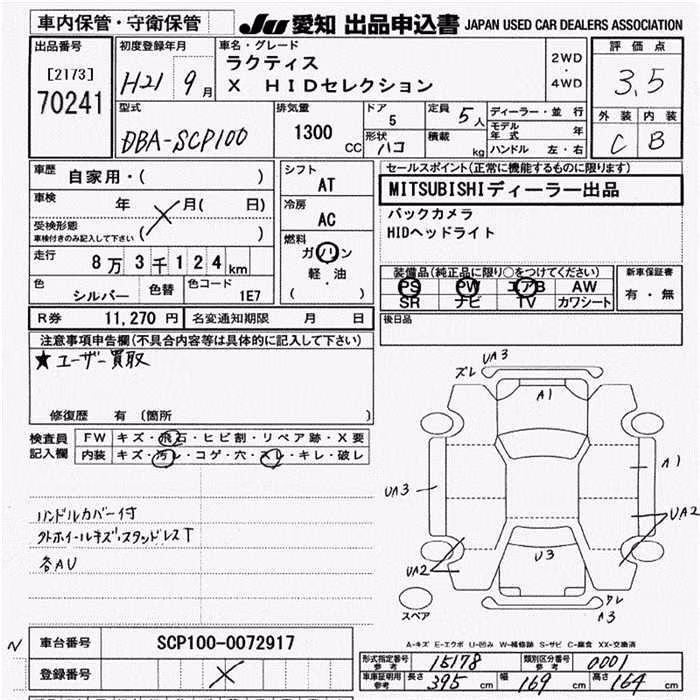 車内保管・守衛保管 JU 愛知 出品申込書 JAPAN USED CAR DEALERS ASSOCIATION
出品番号 初度登録年月 車名・グレード 2WD・4WD 評価点
[2173] 70241 H21 9月 ラクティス 3.5
X HIDセレクション
外装 内装
C B
型式 排気量 ドア 定員 ディーラー・並行
DBA-SCP100 1300cc 5 5人 モデル年式 年
形状 ハコ 積載 kg ハンドル 左・右
車歴 自家用・( ) シフト セールスポイント(正常に機能するものに限ります)
AT MITSUBISHIディーラー出品
車検 年 月( 日) 冷房 バックカメラ
受検形態 AC HIDヘッドライト
車検付きのみ記入して下さい ( )
燃料
走行 8万3千124km ガソリン 装備品(純正品に限り○をつけてください) 新車保証書
軽・油 PS PW エアB AW 有・無
色 シルバー 色替 色コード 1E7 ( ) SR ナビ TV カワシート
R券 11,270円 名変通知期限 月 日 後日品
注意事項申告欄(不具合内容等は具体的に記入して下さい)
★ユーザー買取
修復歴 有(箇所 )
検査員 FW キズ・飛石・ヒビ割・リペア跡・X要
記入欄 内装 キズ・汚レ・コゲ・穴・スレ・キレ・破レ
ハンドルカバー付
スタッドレスT
各AU
UA3
ズレ
A1
A1
UA3
UA2
UA2
U3
スペア
A3
A-キズ E-エクボ U-凹み W-補修跡 S-サビ C-腐食 XX-交換済
N 車台番号 SCP100-0072917
登録番号
形式指定番号 参考 15178 類別区分番号 参考 0001
車庫証明用 参考 長さ 395cm 幅 169cm 高さ 164cm